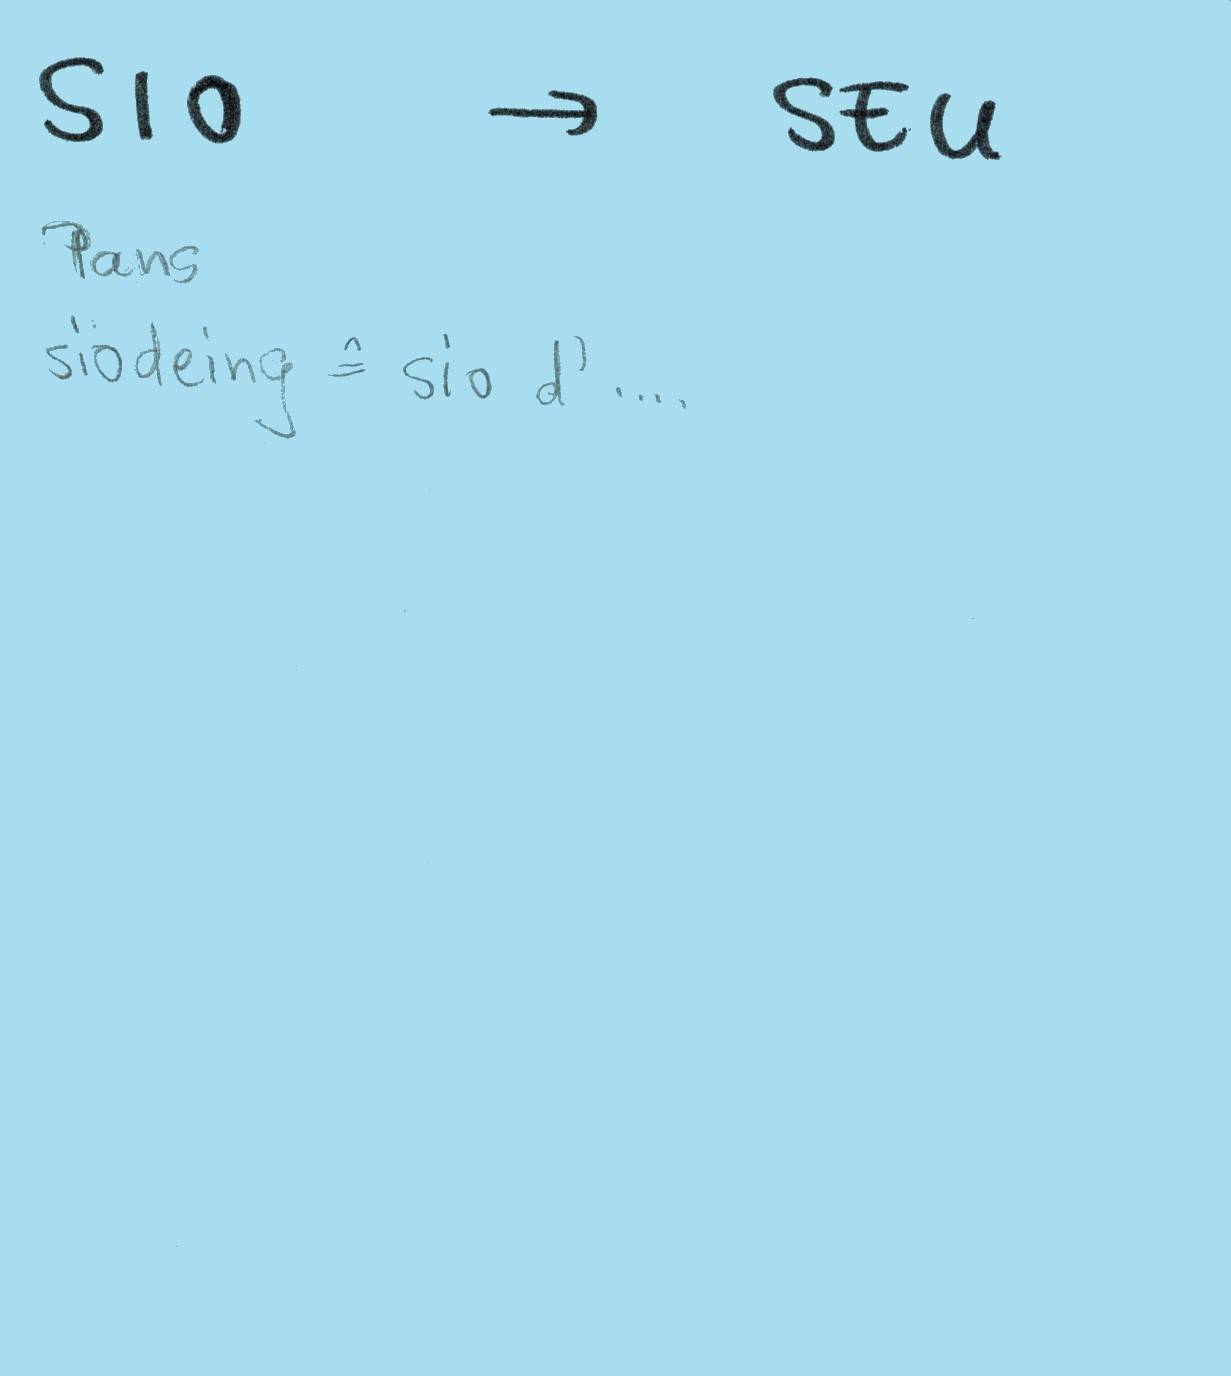 SIO → SEU
Pans
siodeing ≙ sio d' ....